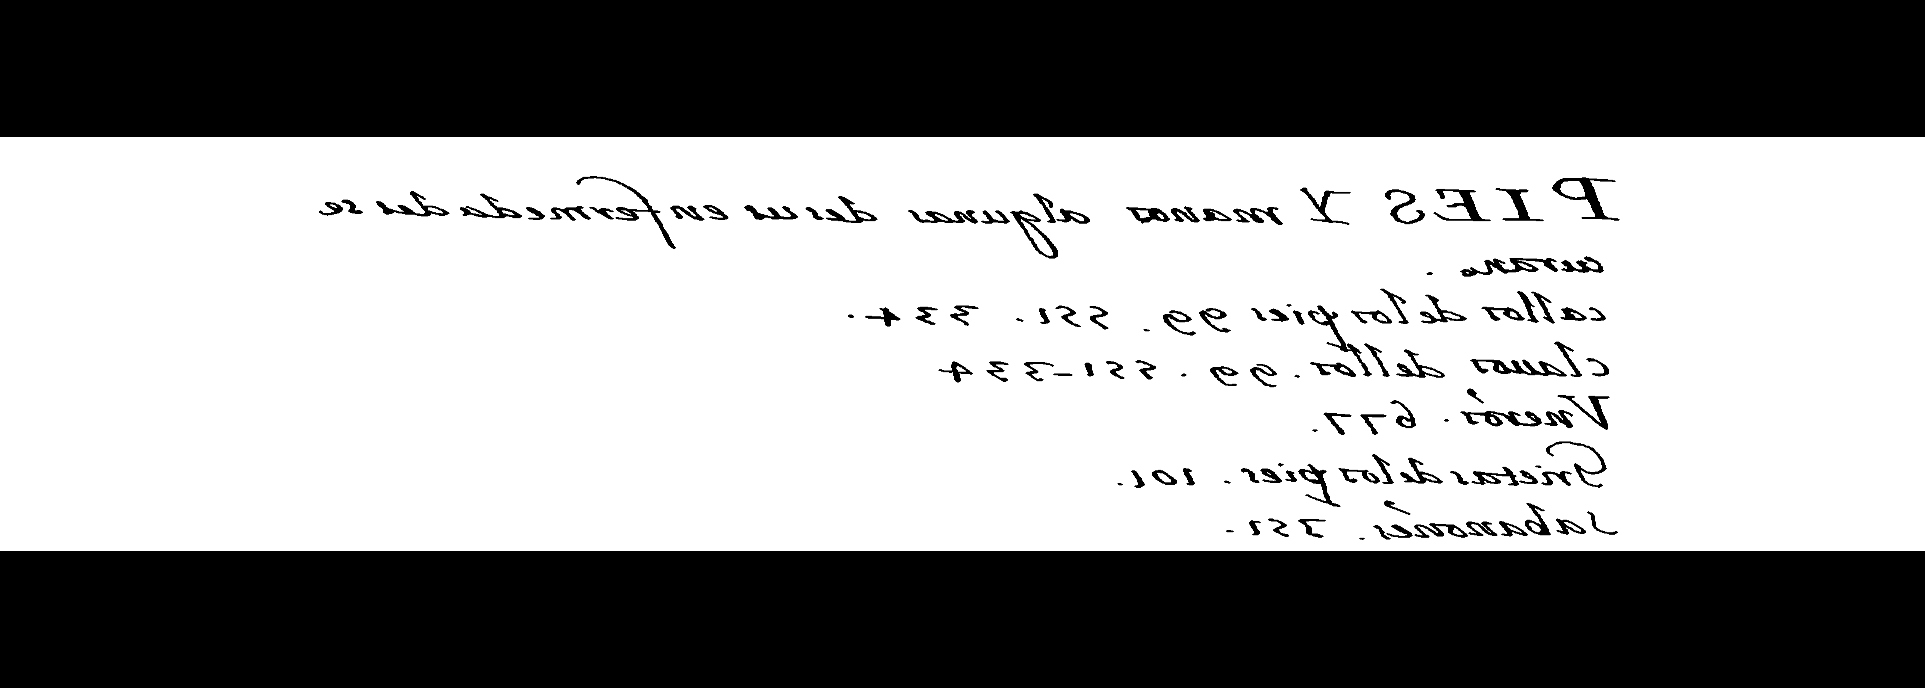 PIES Y manos algunas de sus enfermedades se
curan.
callos de los pies 99. 551. 334.
clauos dellos. 99. 551-334
Vñeros. 677.
Grietas de los pies. 101.
sabañones. 751.